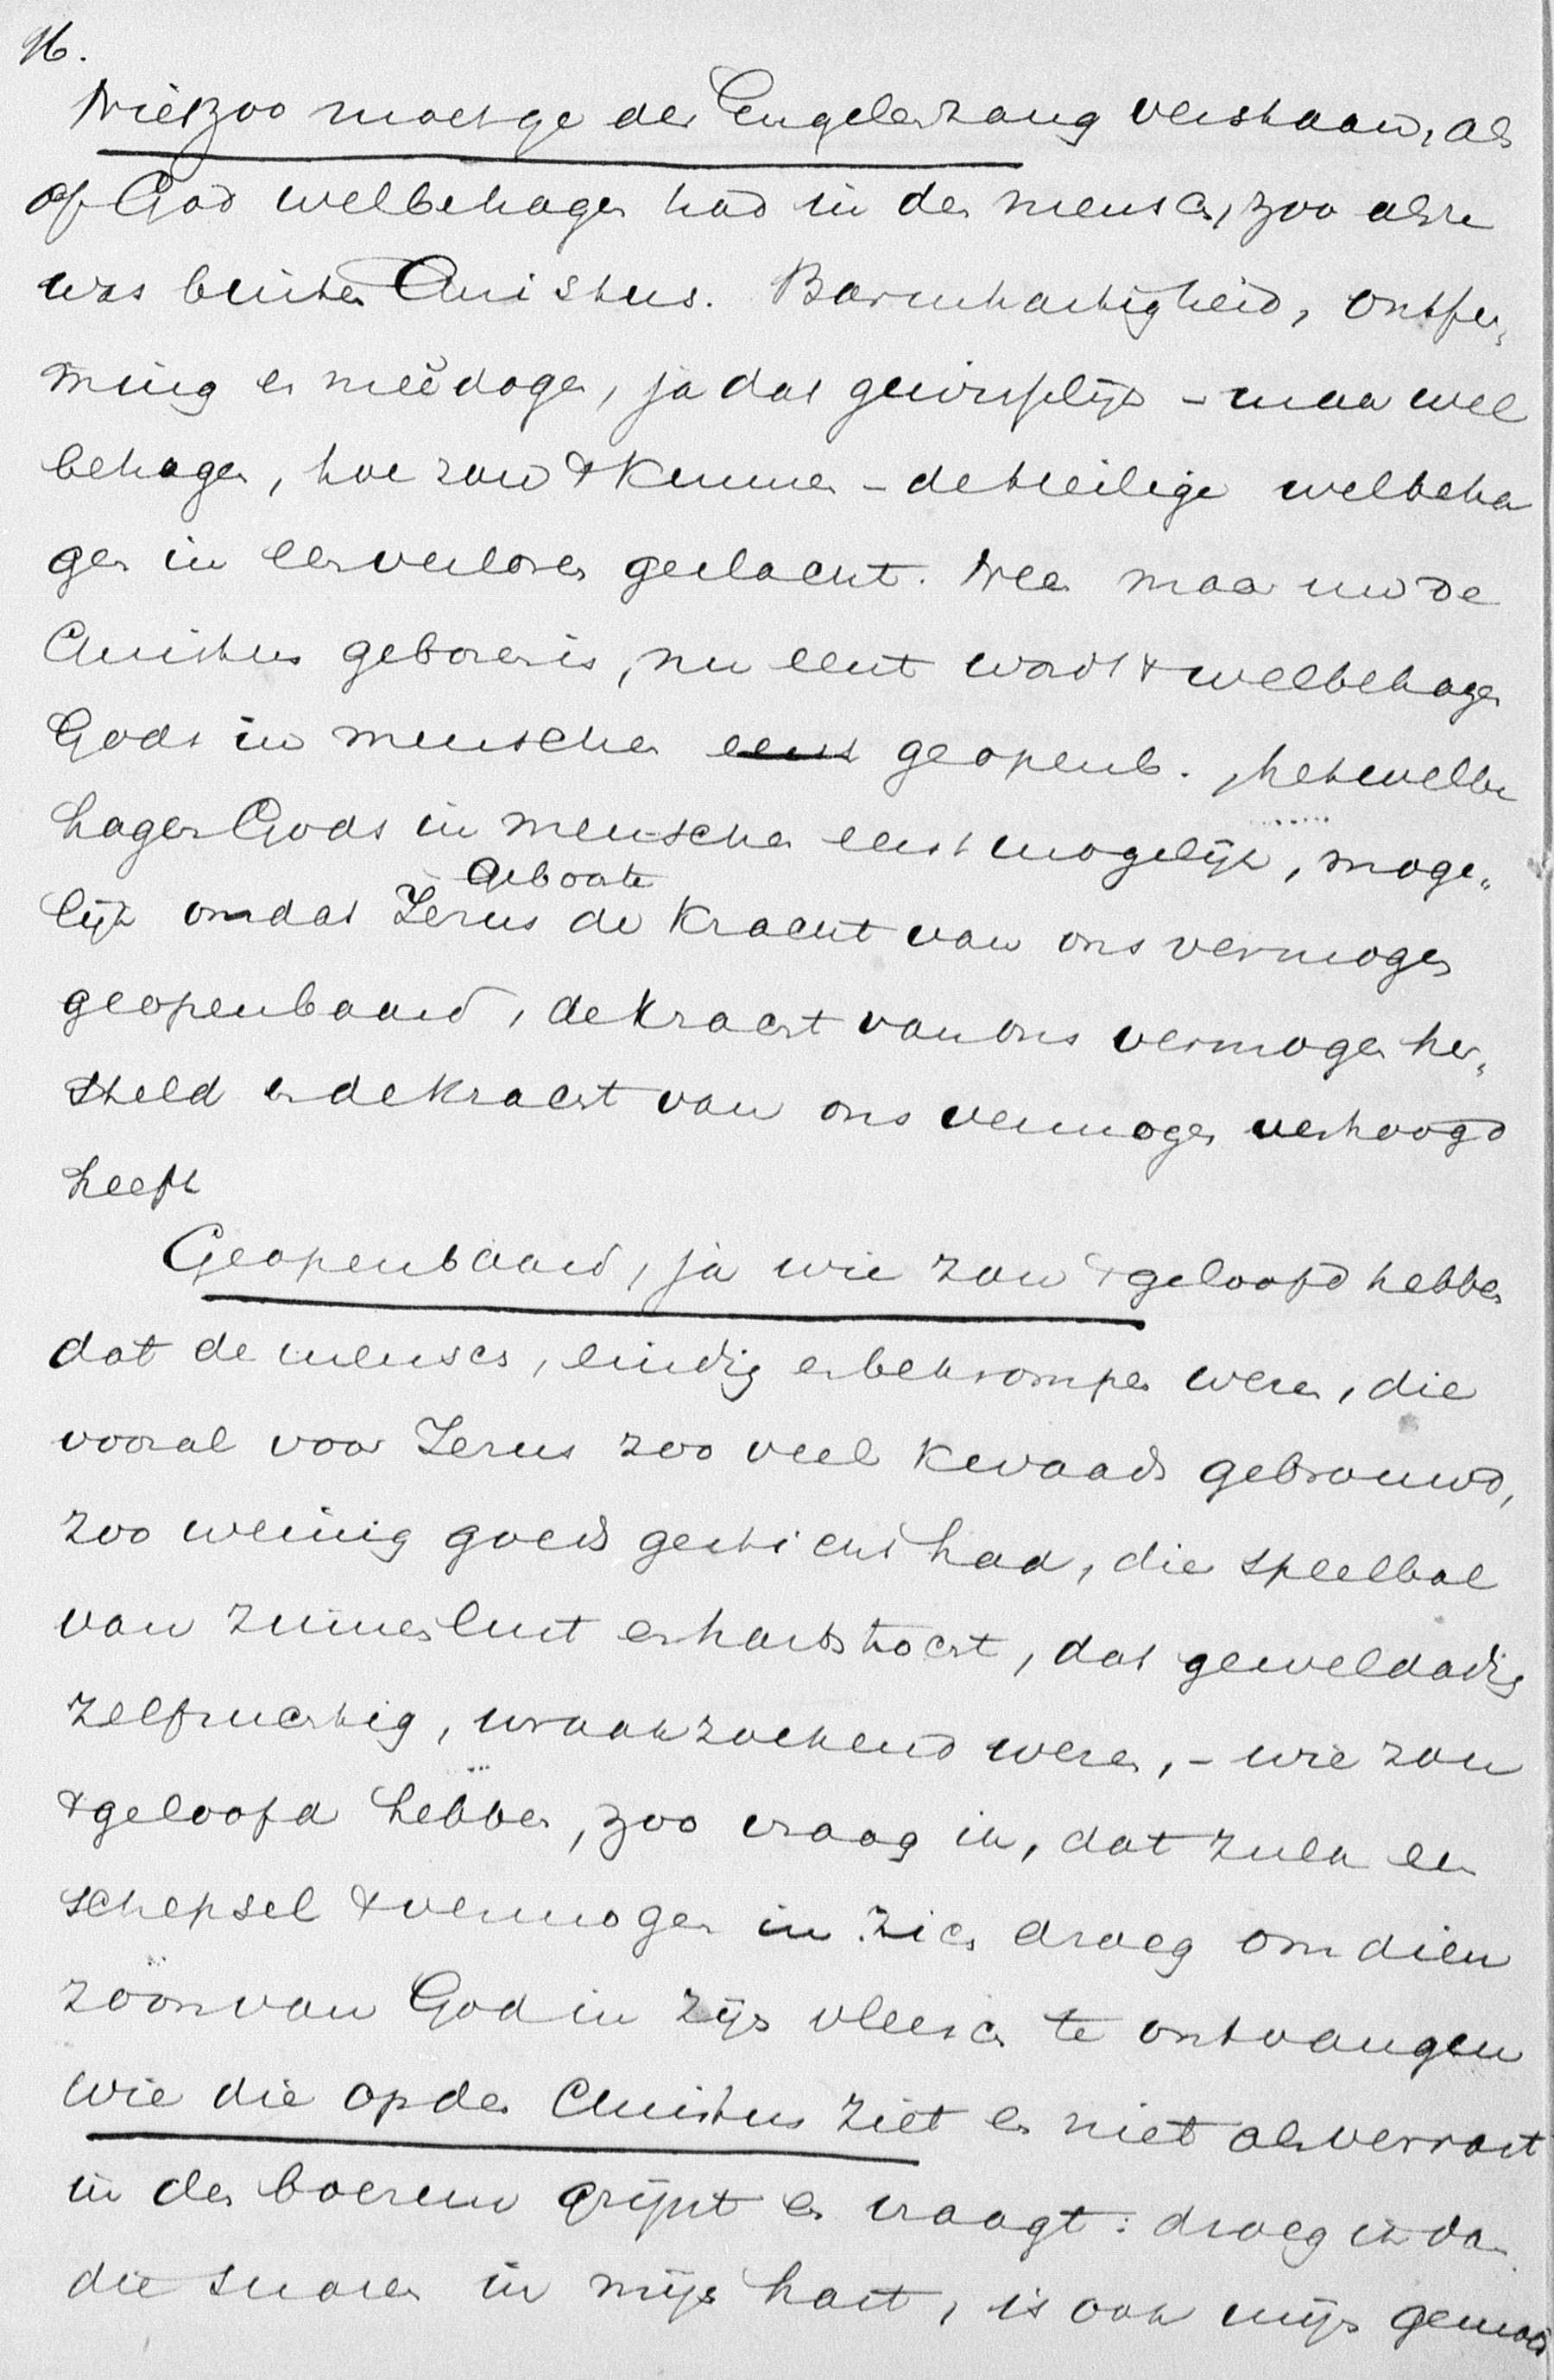 16.
Niet zoo moet ge den Engelenzang verstaan, als
of God welbehagen had in den mensch, zoo als ze
was buiten Christus. Barmhartigheid, ontfer„
ming en meêdogen, ja dat gewisselijk – maar wel
behagen, hoe zou 't kunnen – de heilige welbeha
gen in een verloren geslacht. Neen maar nu de
Christus geboren is, nu eerst wordt 't welbehagen
Gods in menschen eerst geopenb., het welbe
hagen Gods in menschen eerst mogelijk, moge„
Geboorte
lijk omdat Jezus de kracht van ons vermogen
geopenbaard, de kracht van ons vermogen her„
steld en de kracht van ons vermogen verhoogd
heeft
Geopenbaard, ja wie zou 't geloofd hebben
dat de mensch, eindig en bekrompen wezen, die
vooral voor Jezus zoo veel kwaads gebrouwd,
zoo weinig goeds gesticht had, die speelbal
van zinnenlust en hartstocht, dat gewelddadig
zelfzuchtig, wraakzoekend wezen, – wie zou
't geloofd hebben, zoo vraag ik, dat zulk een
schepsel 't vermogen in zich droeg om dien
zoon van God in zijn vleesch te ontvangen
Wie die op den Christus ziet en niet als verrast
in den boezem grijpt en vraagt: droeg ik dan
die snaren in mijn hart, is ook mijn gemoed